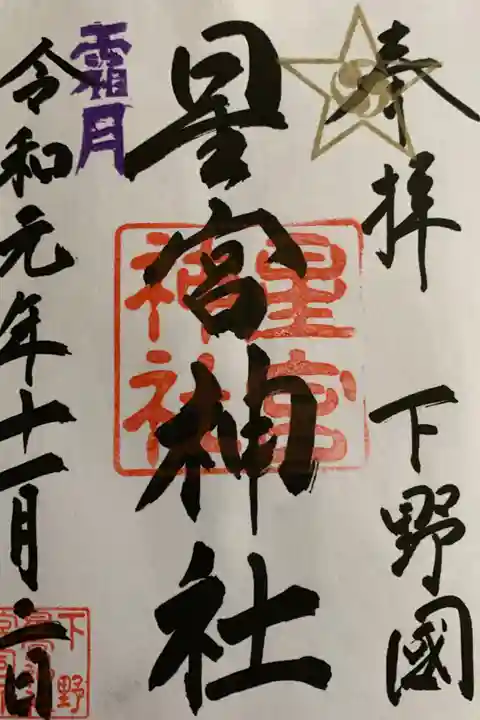 奉拝 下野國
星宮神社
星宮神社
霜月
令和元年十一月二日